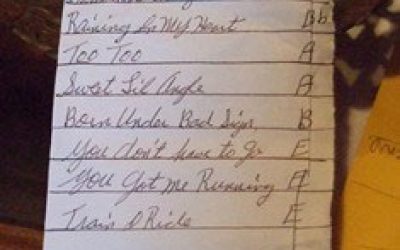 Raining In My Heart Bb
Too Too A
Sweet Lil Angle A
Born Under Bad Sign B
You don't have to Go E
You Got Me Running A
Train I Ride E